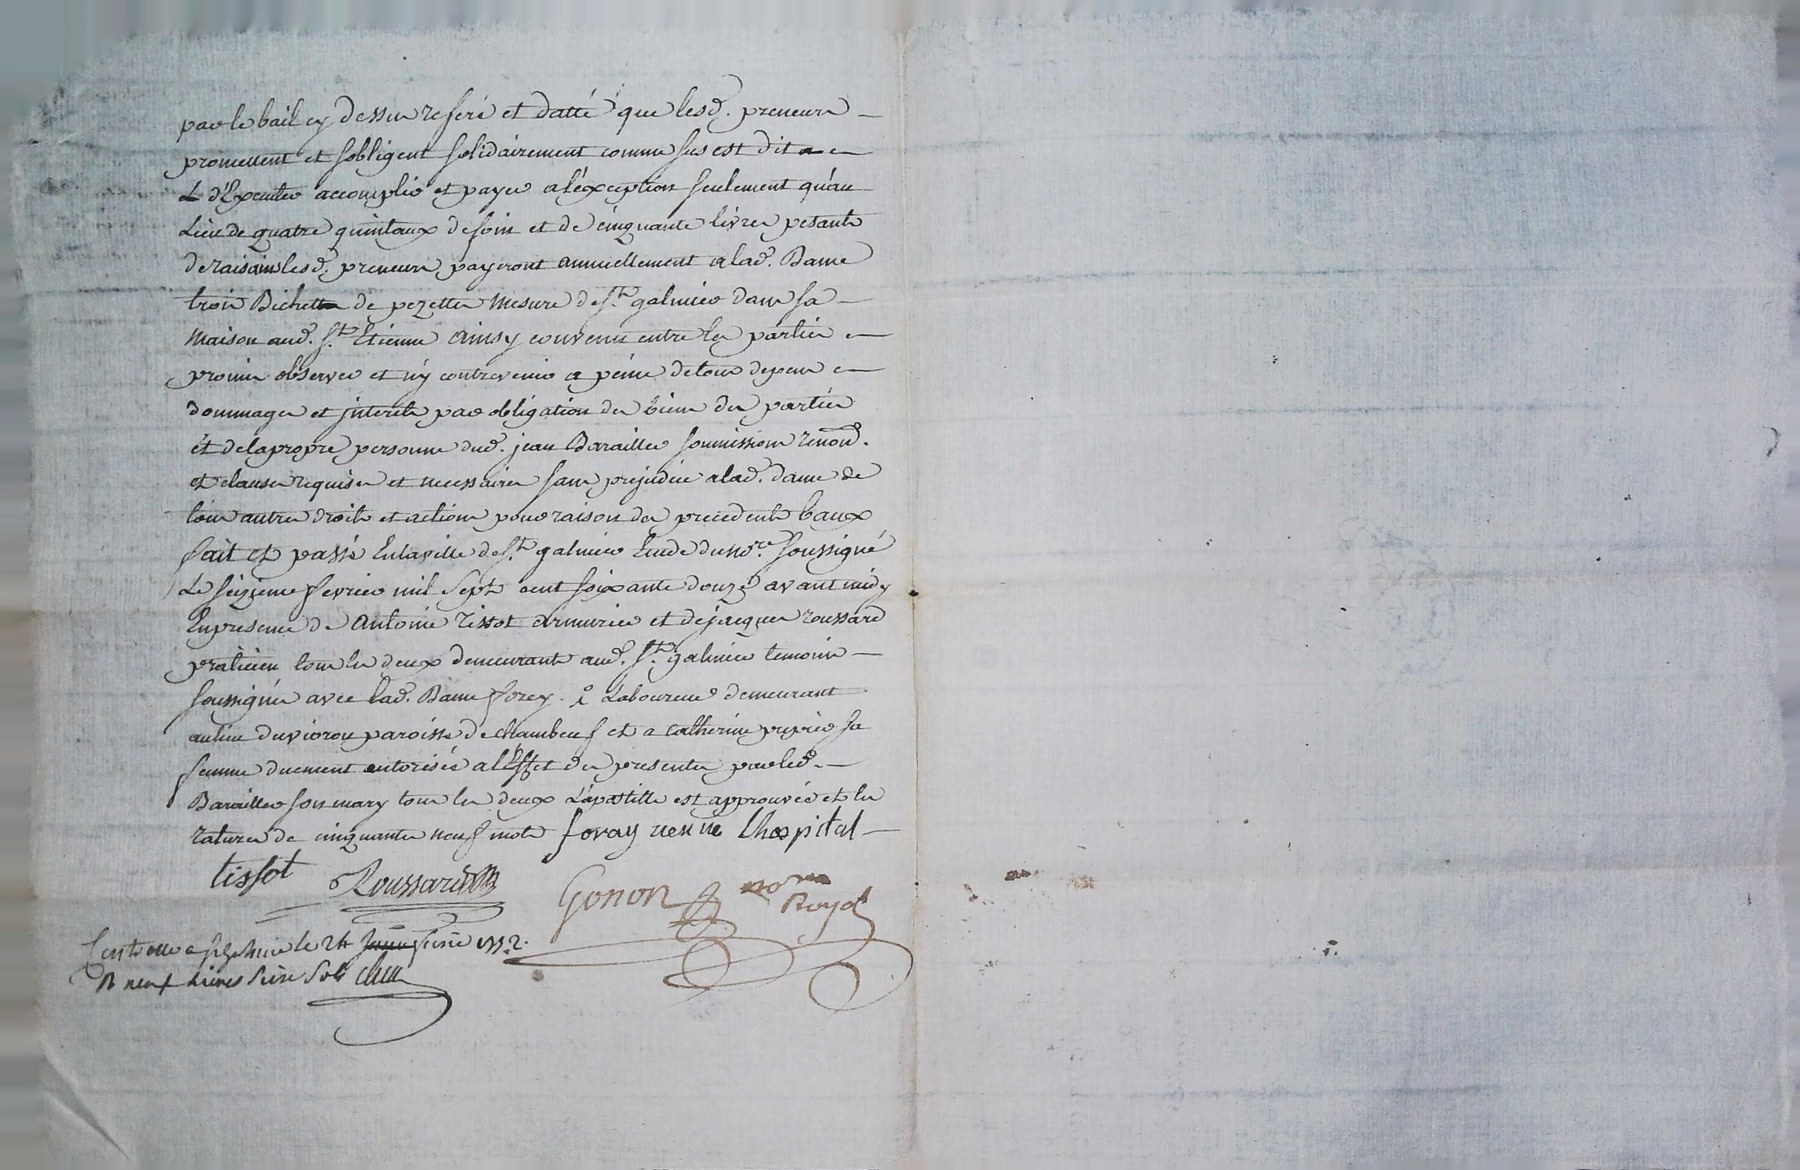 par le bail cy dessus referé et datté que lesd. preneurs
promettent et sobligent solidairement comme sus est dit
d'Executer accomplir et payer a léxception seulement qúau
Lieu de quatre quintaux de foin et de cinquante livres pesants
de raisains lesd. preneurs payeront annuellement a lad. Dame
trois Bichets de pezettes mesure de st. galmier dans sa
maison aud. st. Etienne ainsy convenu entre les parties
promis observer et n'y contrevenir a peine de tous depens
dommages et jnterets par obligation des biens des parties
et de la propre personne dud. jean Barailler soumissions renon.
et clauses requises et necessaires sans prejudice a lad. dame de
tous autres droits et actions pour raison des precedents baux
fait et passé En la ville de st. galmier Etude du nore. soussigné
Le seizieme fevrier mil sept cent soixante douze avant midy
En presence de Antoine Tissot armurier et de jacques roussard
praticien tous les deux demeurants aud. st. galmier temoins
soussignés avec lad. Dame forey. Laboureur demeurant
au lieu du paroisse de chambeuf et a catherine sa
femme duement autorisée a lEffet des presentes par led.
Barailler son mary tous les deux L'apostille est approuvée et les
ratures de cinquante neuf mots foray veuve Lhospital
tissot Roussard
Gonon nore Royal
le 24
R neuf livres sols